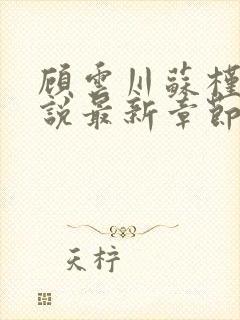 顾雲川蘇槿
說最新章節
天梓